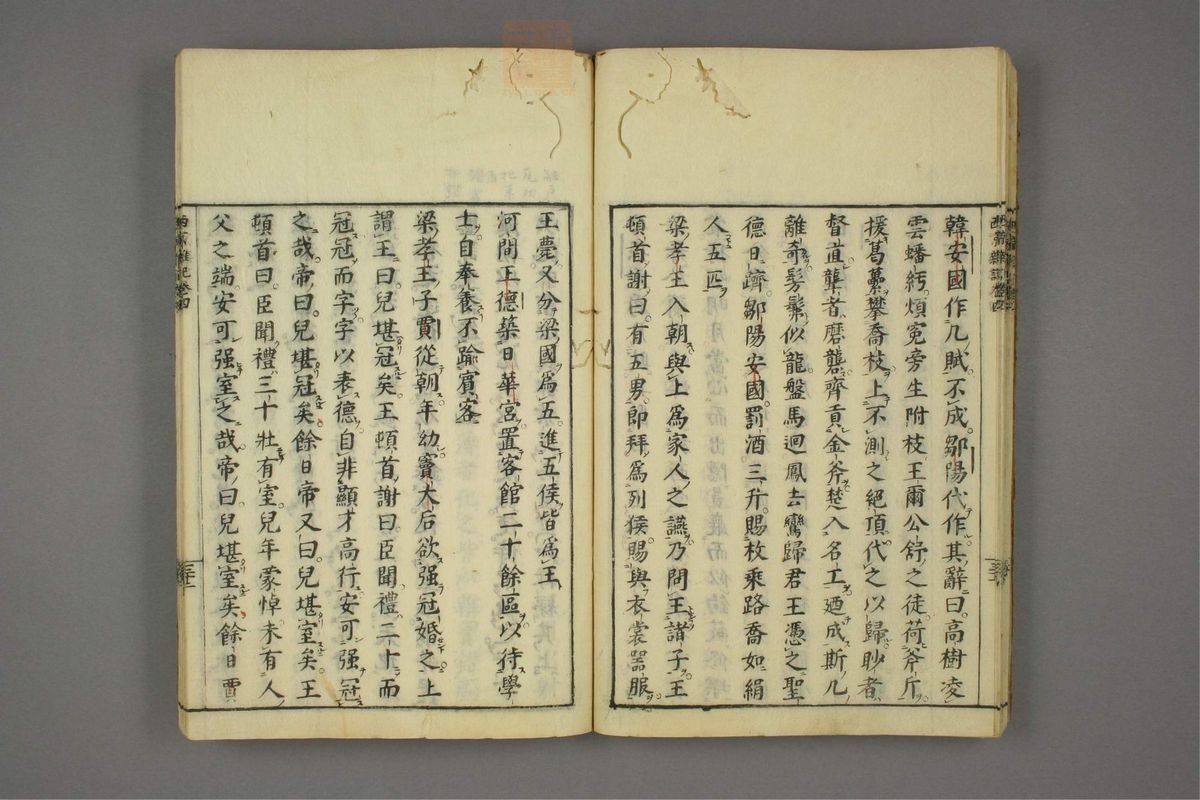 韓安國作几賦不成鄒陽代作其辭曰高樹凌
雲蟠紆煩寃旁生附枝王爾公舒之徒荷斧斤
援葛虆攀喬枝上不測之絕頂伐之以歸眇者
督直聾者磨礲齊貢金斧楚入名工廼成斯几
離奇髣髴似龍盤馬迴鳳去鸞歸君王憑之聖
德日躋鄒陽安國罰酒三升賜枚乘路喬如絹
人五匹
梁孝王入朝與上爲家人之讌乃問王諸子王
頓首謝曰有五男卽拜爲列侯賜與衣裳器服
王薨又分梁國爲五進五侯皆爲王
河間王德築日華宮置客館二十餘區以待學
士自奉養不踰賓客
梁孝王子賈從朝年幼竇太后欲强冠婚之上
謂王曰兒堪冠矣王頓首謝曰臣聞禮二十而
冠冠而字字以表德自非顯才高行安可强冠
之哉帝曰兒堪冠矣餘日帝又曰兒堪室矣王
頓首曰臣聞禮三十壯有室兒年蒙悼未有人
父之端安可强室之哉帝曰兒堪室矣餘日賈